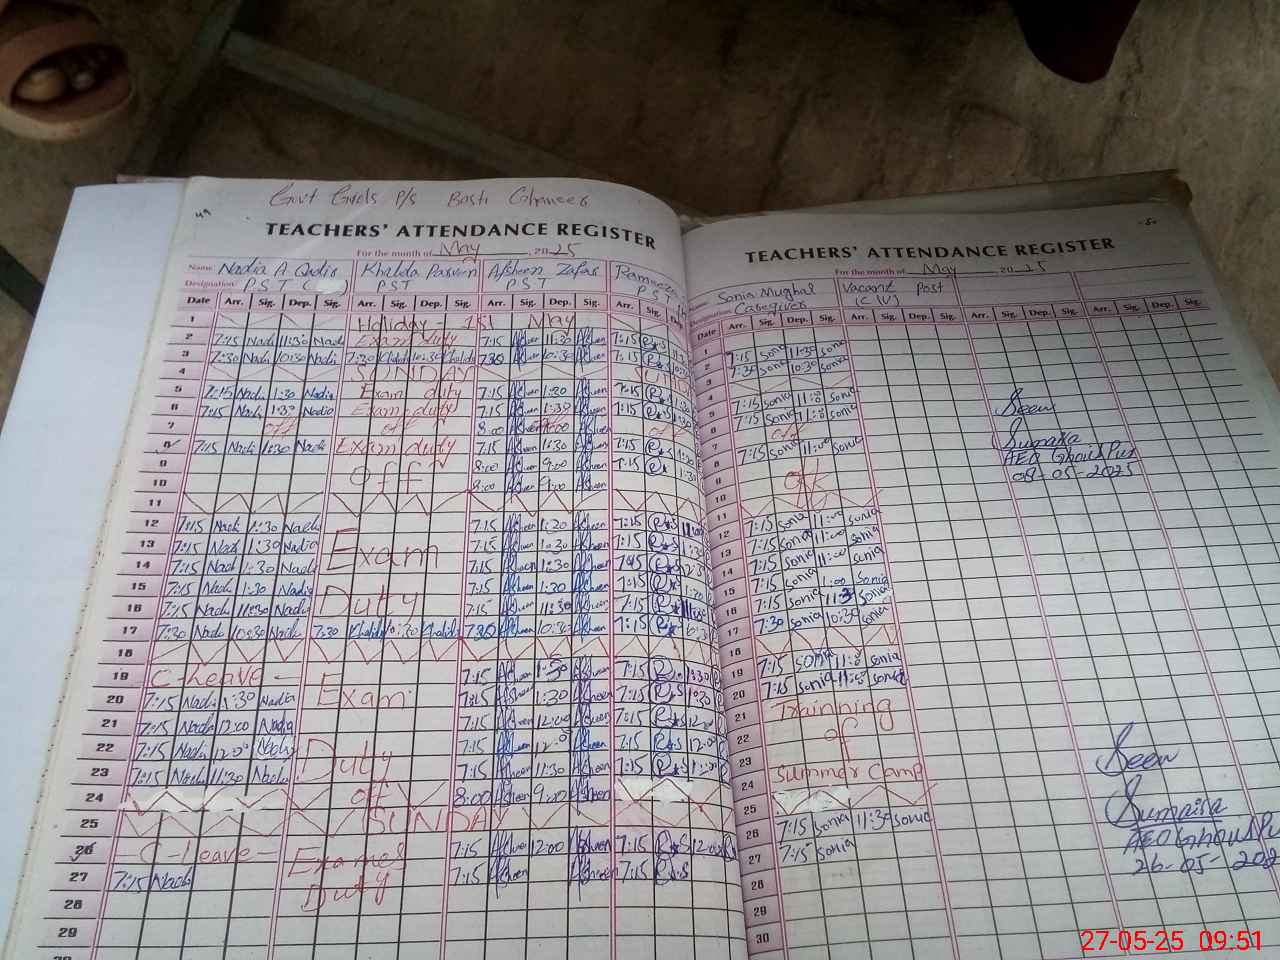 Govt Girls P/S Basti Ghaneer
49
TEACHERS' ATTENDANCE REGISTER
For the month of May, 2025
Name Nadia A Qadir Khalida Parveen Afsheen Zafar Rameeza
Designation P S T PST P S T P S T
Date Arr. Sig. Dep. Sig. Arr. Sig. Dep. Sig. Arr. Sig. Dep. Sig. Arr. Sig. Dep
1 Holiday - 1st May
2 7:15 Nadi 11:30 Nadi Exam duty 7:15 Afsheen 11:30 Afsheen 7:15 R*S
3 7:30 Nadi 10:30 Nadi 7:30 Khalida 10:30 Khalida 7:30 Afsheen 10:30 Afsheen 7:15 R*S
4 SUNDAY
5 7:15 Nadi 1:30 Nadia Exam duty 7:15 Afsheen 1:30 Afsheen 7:15 R*S
6 7:15 Nadi 1:30 Nadia Exam duty 7:15 Afsheen 1:30 Afsheen 7:15 R*S
7 off off 8:00 Afsheen off
8 7:15 Nadi 1:30 Nadi Exam duty 7:15 Afsheen 1:30 Afsheen 7:15
9 Off 8:00 Afsheen 9:00 Afsheen 7:15
10 8:00 Afsheen 9:00 Afsheen
11
12 7:15 Nadi 1:30 Nadi 7:15 Afsheen 1:30 Afsheen 7:15 R*S
13 7:15 Nadi 1:30 Nadia Exam 7:15 Afsheen 1:30 Afsheen 7:15 R*S
14 7:15 Nadi 1:30 Nadi 7:15 Afsheen 1:30 Afsheen 7:15 R*S
15 7:15 Nadi 1:30 Nadia 7:15 Afsheen 1:30 Afsheen 7:15 R*S
16 7:15 Nadi 11:30 Nadi Duty 7:15 Afsheen 11:30 Afsheen 7:15 R*S
17 7:30 Nadi 10:30 Nadi 7:30 Khalida 10:30 Khalida 7:30 Afsheen 10:30 Afsheen 7:15 R*S
18
19 C-leave - 7:15 Afsheen 1:30 Afsheen 7:15 R*S 1:30
20 7:15 Nadi 1:30 Nadia Exam 7:15 Afsheen 1:30 Afsheen 7:15 R*S 1:30
21 7:15 Nadi 12:00 Nadia 7:15 Afsheen 12:00 Afsheen 7:15 R*S 12:00
22 7:15 Nadi 12:00 Nadi 7:15 Afsheen 12:00 Afsheen 7:15 R*S 12:00
23 7:15 Nadi 11:30 Nadi Duty 7:15 Afsheen 11:30 Afsheen 7:15 R*S
24 off 8:00 Afsheen 9:00 Afsheen
25 SUNDAY
26 - C-leave - Exames 7:15 Afsheen 12:00 Afsheen 7:15 R*S 12:00
27 7:15 Nadi Duty 7:15 Afsheen Afsheen 7:15 R*S
28
29
TEACHERS' ATTENDANCE REGISTER
50
For the month of May 2025
Name Sonia Mughal Vacant Post
Designation Caregiver (C IV)
Date Arr. Sig. Dep. Sig. Arr. Sig. Dep. Sig. Arr. Sig. Dep. Sig. Arr. Sig. Dep. Sig.
1 7:15 Sonia 11:30 Sonia
2 7:30 Sonia 10:30 Sonia
3
4 7:15 Sonia 11:00 Sonia
5 7:15 Sonia 11:00 Sonia
6 off
7 7:15 Sonia 11:00 Sonia
8
9 off
10
11 7:15 Sonia 11:00 Sonia
12 7:15 Sonia 11:00 Sonia
13 7:15 Sonia 11:00 Sonia
14
15 7:15 Sonia 1:00 Sonia
16 7:15 Sonia Sonia
17 7:30 Sonia 10:30 Sonia
18
19 7:15 Sonia Sonia
20 7:15 Sonia Sonia
21 Trainning
22 of
23 Summer Camp
24
25
26 7:15 Sonia 11:30 Sonia
27 7:15 Sonia
28
29
30
Seen
Sumaira
AEO GhousPur
08-05-2025
Seen
Sumaira
AEO GhousPur
26-05-202
27-05-25 09:51